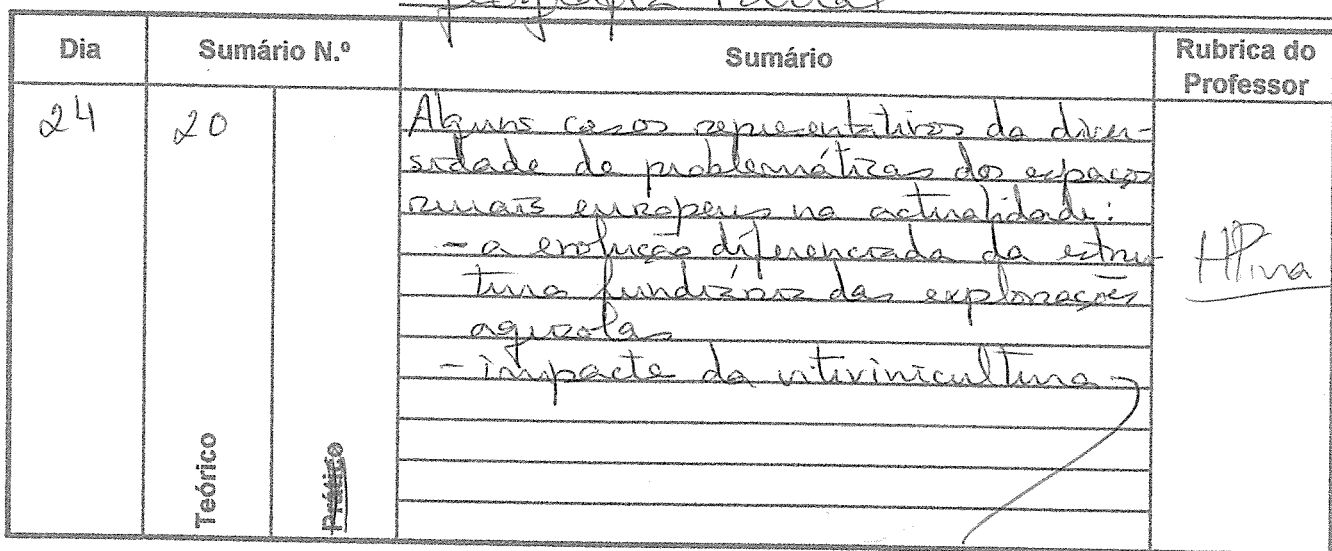 Geografia Rural
Dia Sumário N.º Sumário Rubrica do Professor
24 20
Alguns casos representativos da diver-
sidade de problemáticas dos espaços
rurais europeus na actualidade:
- a evolução diferenciada da estru-
tura fundiária das explorações
agrícolas
- impacte da vitivinicultura
HPina
Teórico Prático